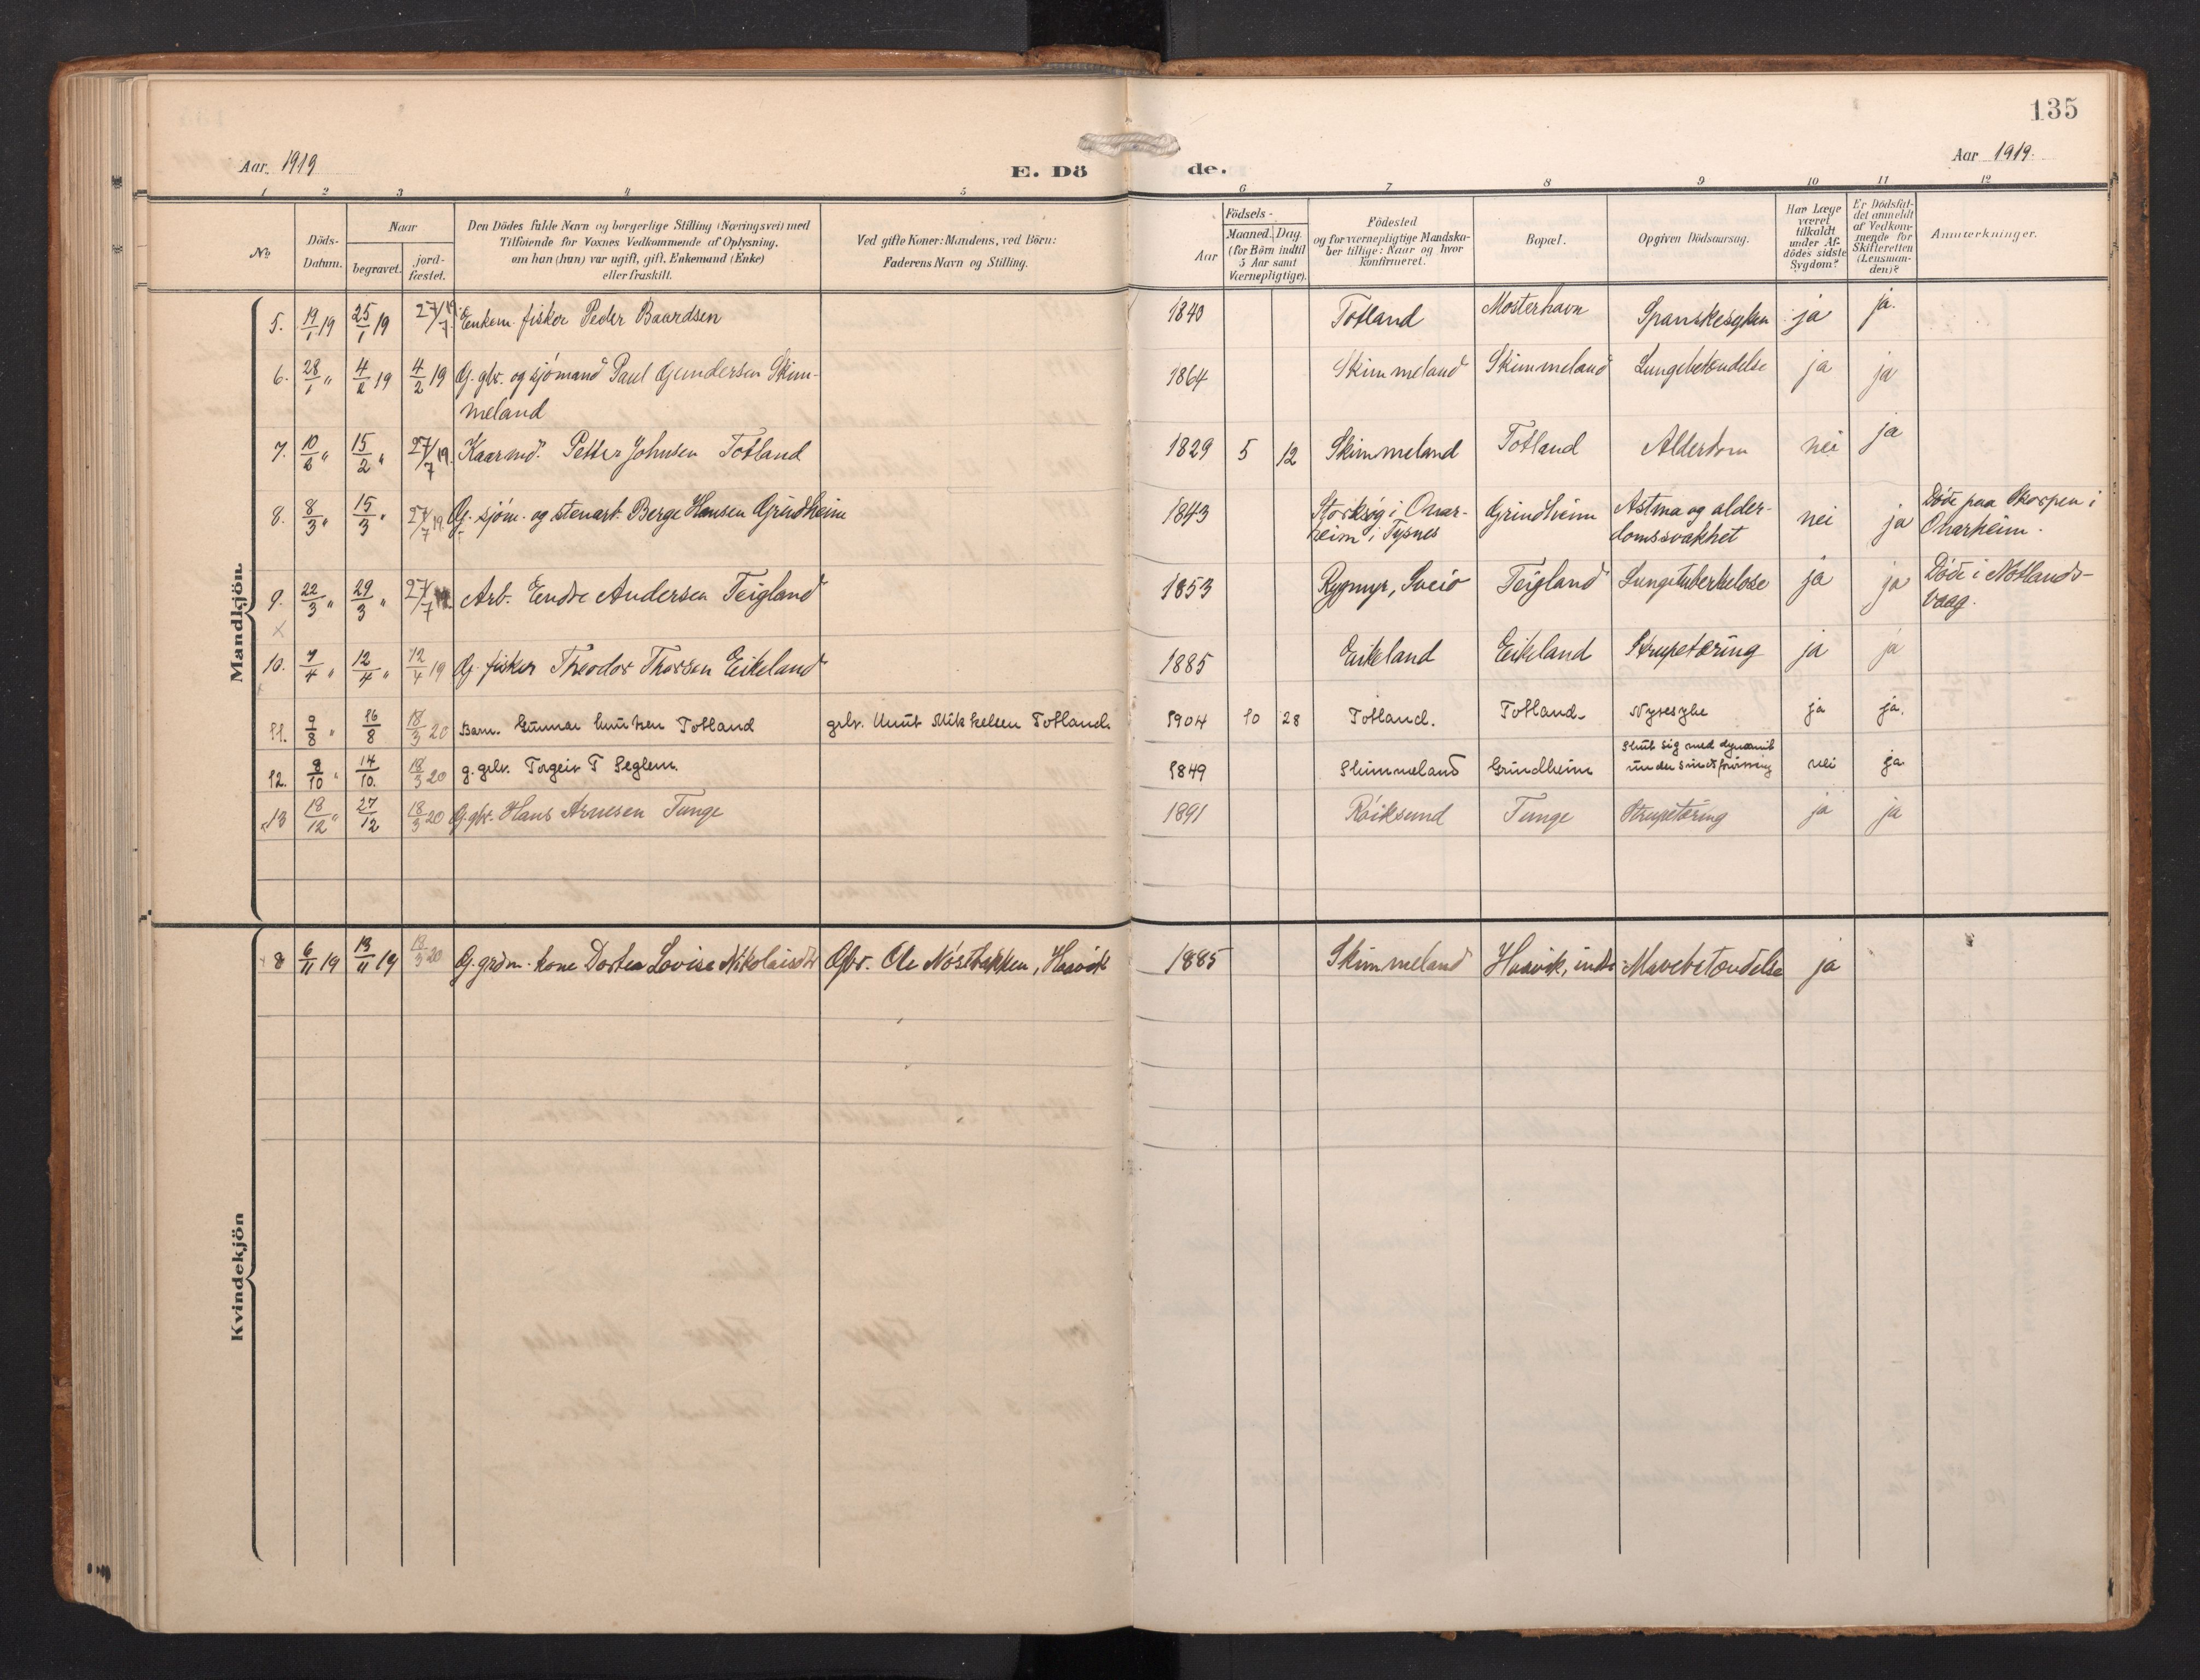 135
Aar. 1919
E. Dö
de.
Aar 1919.
1 2 3 4 5 6 7 8 9 10 11 12
No
Döds-
Datum.
Naar
begravet.
jord-
fæstet.
Den Dödes fulde Navn og borgerlige Stilling (Næringsvei) med
Tilföiende for Voxnes Vedkommende af Oplysning,
om han (hun) var ugift, gift, Enkemand (Enke)
eller fraskilt.
Ved gifte Koner: Mandens, ved Börn:
Faderens Navn og Stilling.
Aar
Födsels-
Maaned. Dag.
(for Börn indtil
5 Aar samt
Værnepligtige).
Födested
og for værnepligtige Mandska-
ber tillige: Naar og hvor
konfirmeret.
Bopæl.
Opgiven Dödsaarsag.
Har Læge
været
tilkaldt
under Af-
dödes sidste
Sygdom?
Er Dödsfal-
det anmeldt
af Vedkom-
mende for
Skifteretten
(Lensman-
den)?
Anmærkninger.
Mandkjön.
5. 19/1 19 25/1 19 27/7 19. Enkem. fisker Peder Baardsen 1840 Totland Mosterhavn Spanskesyken ja ja.
6. 28/1 " 4/2 19 4/2 19 G. gbr. og sjömand Paul Gundersen Skim-
meland 1864 Skimmeland Skimmeland Lungebetændelse ja ja
7. 10/2 " 15/2 " 27/7 19. Kaarmd. Petter Johnsen Totland 1829 5 12 Skimmeland Totland Alderdom nei ja
8. 8/3 " 15/3 " 27/7 19. G. sjöm. og stenarb. Berge Hansen Grindheim 1843 Storksög i Onar-
heim i Tysnes Grindheim Astma og alder-
domssvakhet nei ja Döde paa Skorpen i
Onarheim.
9. 22/3 " 29/3 " 27/7 19 Arb. Endre Andersen Teigland 1853 Rygmyr, Sveio Teigland Lungetuberkelose ja ja Döde i Notlands-
vaag.
10. 7/4 " 12/4 " 12/4 19 G. fisker Theodor Thorsen Eikeland 1885 Eikeland Eikeland Strupetæring ja ja
11. 9/8 " 16/8 18/3 20 Barn. Gunnar Knutsen Totland gbr. Knut Mikkelsen Totland. 1904 10 28 Totland. Totland. Nyresyke ja ja.
12. 8/10 " 14/10. 18/3 20 g. gbr. Torgeir T Seglem. 1849 Skimmeland Grindheim Skut sig med dynamit
under sindsforvirring nei ja
13 18/12 " 27/12 18/3 20 G. gbr. Hans Arnesen Tunge 1891 Röiksund Tunge Strupetæring ja ja
Kvindekjön
8 6/11 19 13/11 19 18/3 20 G. grdm. kone Dortea Lovise Nikolaisdtr Gbr. Ole Nöstbakken, Haavik 1885 Skimmeland Haavik, indre Mavebetændelse ja